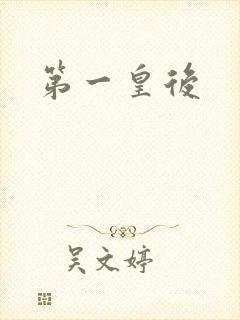 第一皇後
吴文婷